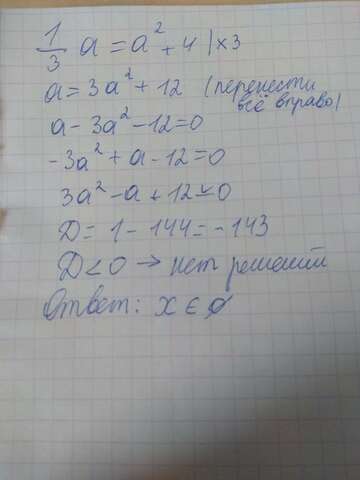 1/3 a = a² + 4 | ×3
a = 3a² + 12 (перенести всё вправо)
a - 3a² - 12 = 0
-3a² + a - 12 = 0
3a² - a + 12 = 0
D = 1 - 144 = -143
D < 0 → нет решений
Ответ: x ∈ ∅